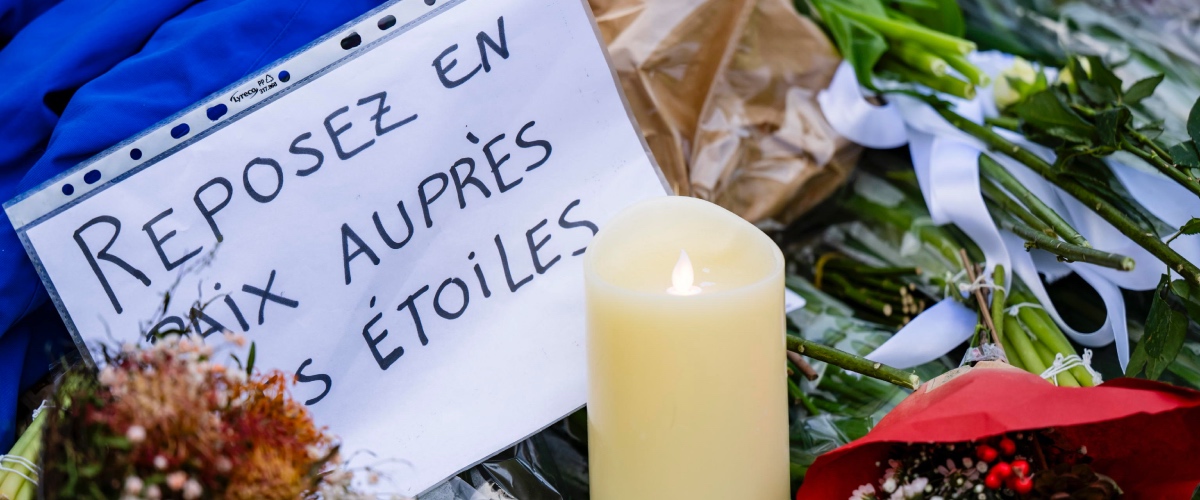 Lyreco PP
REPOSEZ EN
PAIX AUPRÈS
S ÉTOILES